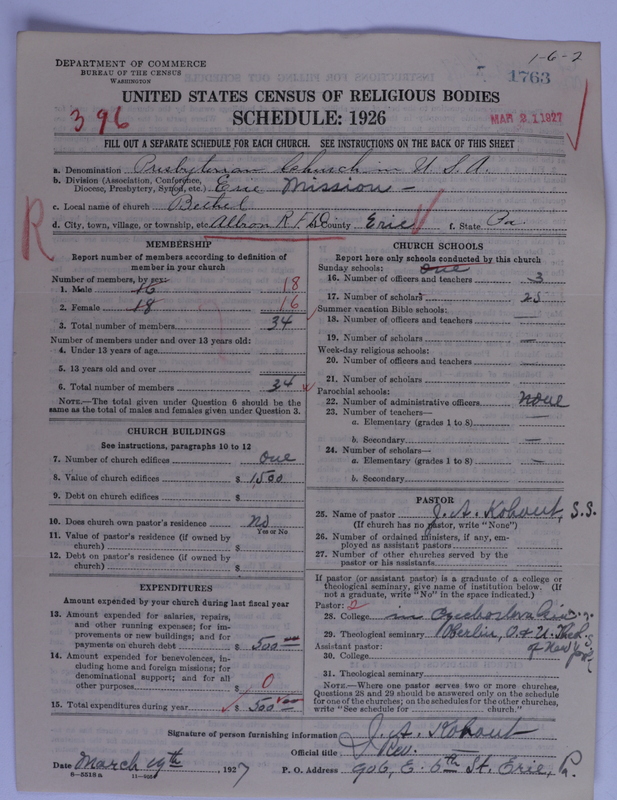 1-6-2
DEPARTMENT OF COMMERCE
BUREAU OF THE CENSUS
WASHINGTON
1763
UNITED STATES CENSUS OF RELIGIOUS BODIES
396
SCHEDULE: 1926
MAR 21 1927
FILL OUT A SEPARATE SCHEDULE FOR EACH CHURCH. SEE INSTRUCTIONS ON THE BACK OF THIS SHEET
a. Denomination Presbyterian Church in U. S. A.
b. Division (Association, Conference, Diocese, Presbytery, Synod, etc.) Erie Mission
c. Local name of church Bethel
d. City, town, village, or township, etc. Albion R.F.D. County Erie f. State Pa.
R
MEMBERSHIP
Report number of members according to definition of
member in your church
Number of members, by sex:
1. Male 16 18
2. Female 18 16
3. Total number of members 34
Number of members under and over 13 years old:
4. Under 13 years of age
5. 13 years old and over
6. Total number of members 34
NOTE.—The total given under Question 6 should be the
same as the total of males and females given under Question 3.
CHURCH BUILDINGS
See instructions, paragraphs 10 to 12
7. Number of church edifices one
8. Value of church edifices $ 1,500
9. Debt on church edifices $
10. Does church own pastor's residence no
Yes or No
11. Value of pastor's residence (if owned by
church) $
12. Debt on pastor's residence (if owned by
church) $
EXPENDITURES
Amount expended by your church during last fiscal year
13. Amount expended for salaries, repairs,
and other running expenses; for im-
provements or new buildings; and for
payments on church debt $ 500
14. Amount expended for benevolences, in-
cluding home and foreign missions; for
denominational support; and for all
other purposes $ 0
15. Total expenditures during year $ 500
CHURCH SCHOOLS
Report here only schools conducted by this church
Sunday schools: one
16. Number of officers and teachers 3
17. Number of scholars 25
Summer vacation Bible schools:
18. Number of officers and teachers —
19. Number of scholars —
Week-day religious schools:
20. Number of officers and teachers —
21. Number of scholars
Parochial schools:
22. Number of administrative officers none
23. Number of teachers—
a. Elementary (grades 1 to 8)
b. Secondary —
24. Number of scholars—
a. Elementary (grades 1 to 8) —
b. Secondary
PASTOR
25. Name of pastor J. A. Kohout, S.S.
(If church has no pastor, write "None")
26. Number of ordained ministers, if any, em-
ployed as assistant pastors
27. Number of other churches served by the
pastor or his assistants
If pastor (or assistant pastor) is a graduate of a college or
theological seminary, give name of institution below. (If
not a graduate, write "No" in the space indicated.)
Pastor: 2
28. College in Czechoslovakia
29. Theological seminary Oberlin, O. & U. Theo. S. of New York
Assistant pastor:
30. College
31. Theological seminary
NOTE.—Where one pastor serves two or more churches,
Questions 28 and 29 should be answered only on the schedule
for one of the churches; on the schedules for the other churches,
write "See schedule for church."
Signature of person furnishing information J. A. Kohout
Official title Rev.
Date March 19th, 1927 P. O. Address 906, E. 6th St. Erie, Pa.
8—5518 a